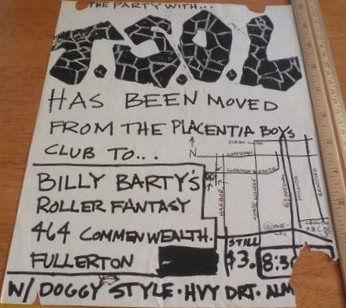 THE PARTY WITH...
T.S.O.L
HAS BEEN MOVED
FROM THE PLACENTIA BOYS
CLUB TO...
N
BILLY BARTY'S
ROLLER FANTASY
464 COMMENWEALTH.
FULLERTON
HARBOR
STILL
$3.
8:30
W/ DOGGY STYLE · HVY DRT. ALM